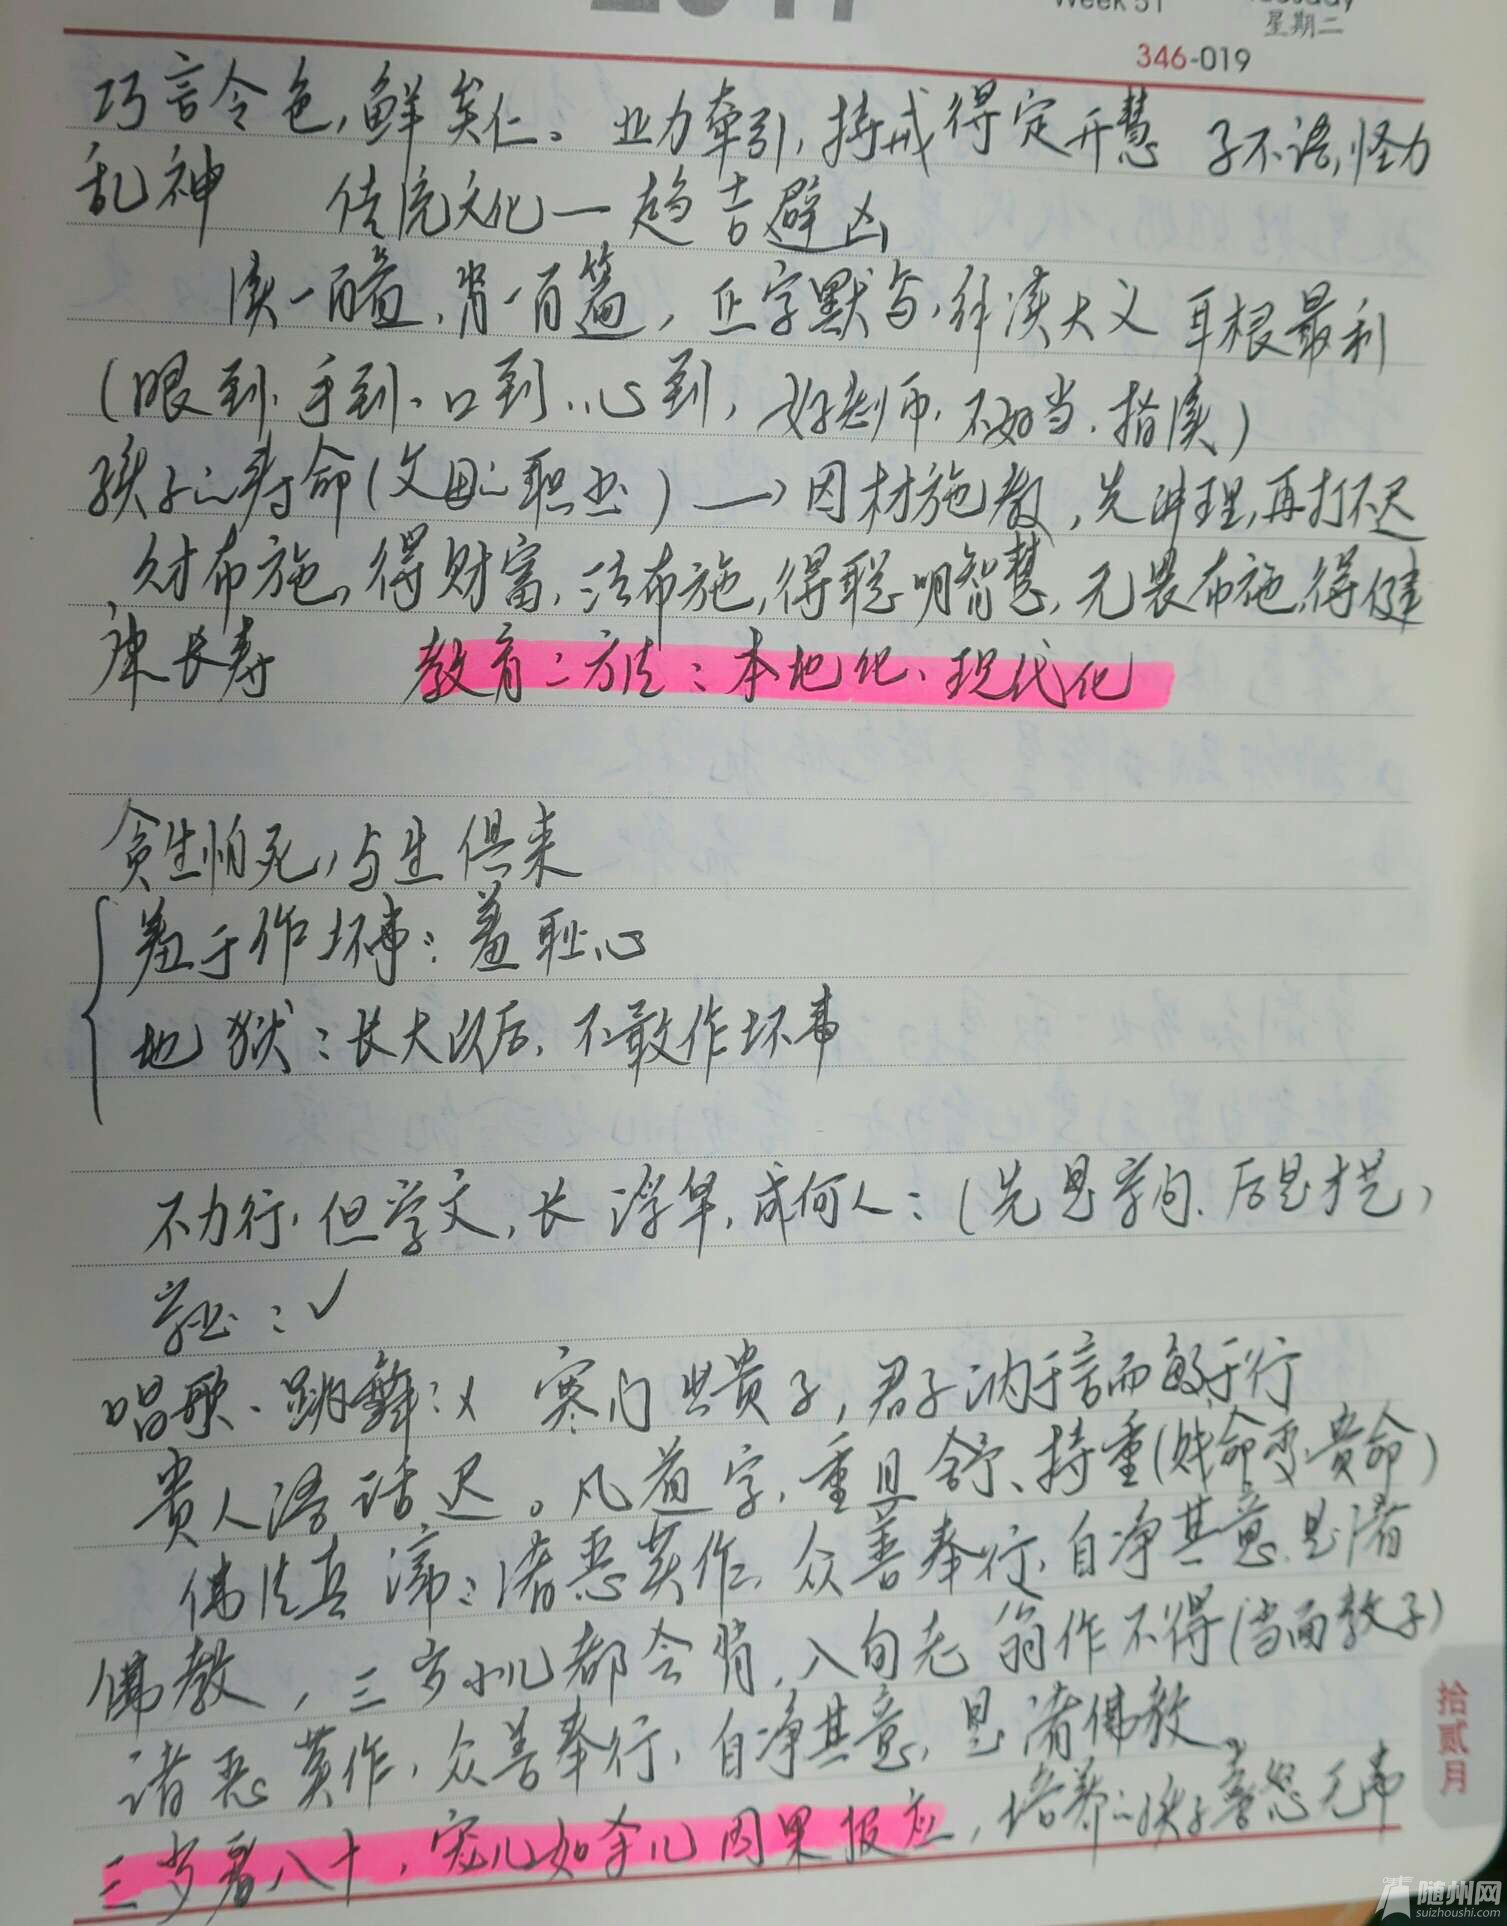 2017
Week 51
Tuesday
星期二
346-019
巧言令色,鲜矣仁。业力牵引,持戒得定开慧 子不语,怪力
乱神 传统文化一趋吉避凶
读一百遍,背一百篇,正字默写,解读大义 耳根最利
(眼到、手到、口到、心到,好老师、不好当、指读)
孩子的寿命(父母的职业)→因材施教,先讲理,再打不迟
财布施,得财富,法布施,得聪明智慧,无畏布施,得健
康长寿 教育的方法:本地化、现代化
贪生怕死,与生俱来
羞于作坏事:羞耻心
地狱:长大以后,不敢作坏事
不力行,但学文,长浮华,成何人:(先是学问、后是才艺)
学业:✓
唱歌、跳舞:× 寒门出贵子,君子讷于言而敏于行
贵人语话迟。凡道字,重且舒、持重(贱命变贵命)
佛法真谛:诸恶莫作,众善奉行,自净其意,是诸
佛教,三岁小儿都会背,八旬老翁作不得(当面教子)
诸恶莫作,众善奉行,自净其意,是诸佛教。
三岁看八十,宠儿如杀儿因果报应,培养的孩子喜怒无常
拾贰月
随州网
suizhoushi.com